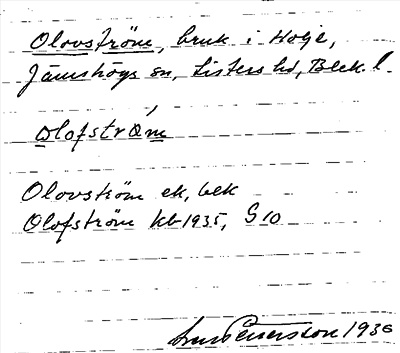 Olovström, bruk i Holje,
Jämshögs sn, Listers hd, Blek. l.
olofstrøm
Olovström ek, bek
Olofström kb 1935, G 10
1936